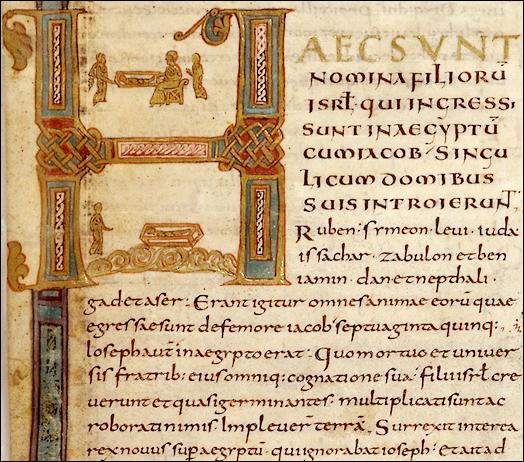 HAEC SUNT
NOMINA FILIORŪ
ISRƚ QUI INGRESSI
SUNT IN AEGYPTŪ
CUM IACOB · SINGU
LI CUM DOMIBUS
SUIS INTROIERUNT ·
Ruben · symeon · levi · iuda
issachar · zabulon et ben
iamin · dan et nepthali ·
gad et aser · Erant igitur omnes animae eorū quae
egressae sunt de femore iacob · septuaginta quinq:
Ioseph aut̄ in aegypto erat · Quo mortuo et univer
sis fratrib: eius omniq: cognatione sua · filii isrƚ cre
verunt et quasi germinantes · multiplicati sunt ac
roborati nimis Impleverr̄ terrā · Surrexit interea
rex novus sup̄ aegyptū qui ignorabat ioseph · et ait ad